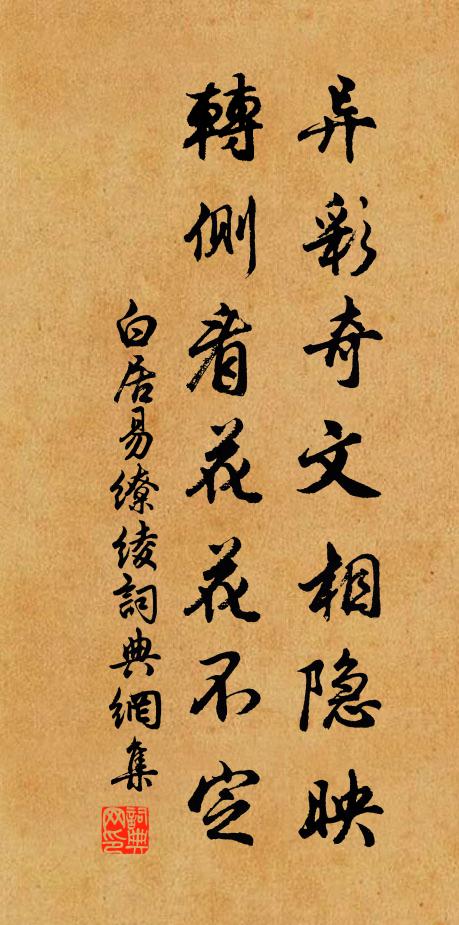 异彩奇文相隐映
轉側看花花不定
白居易繚綾詞典網集
詞典网印